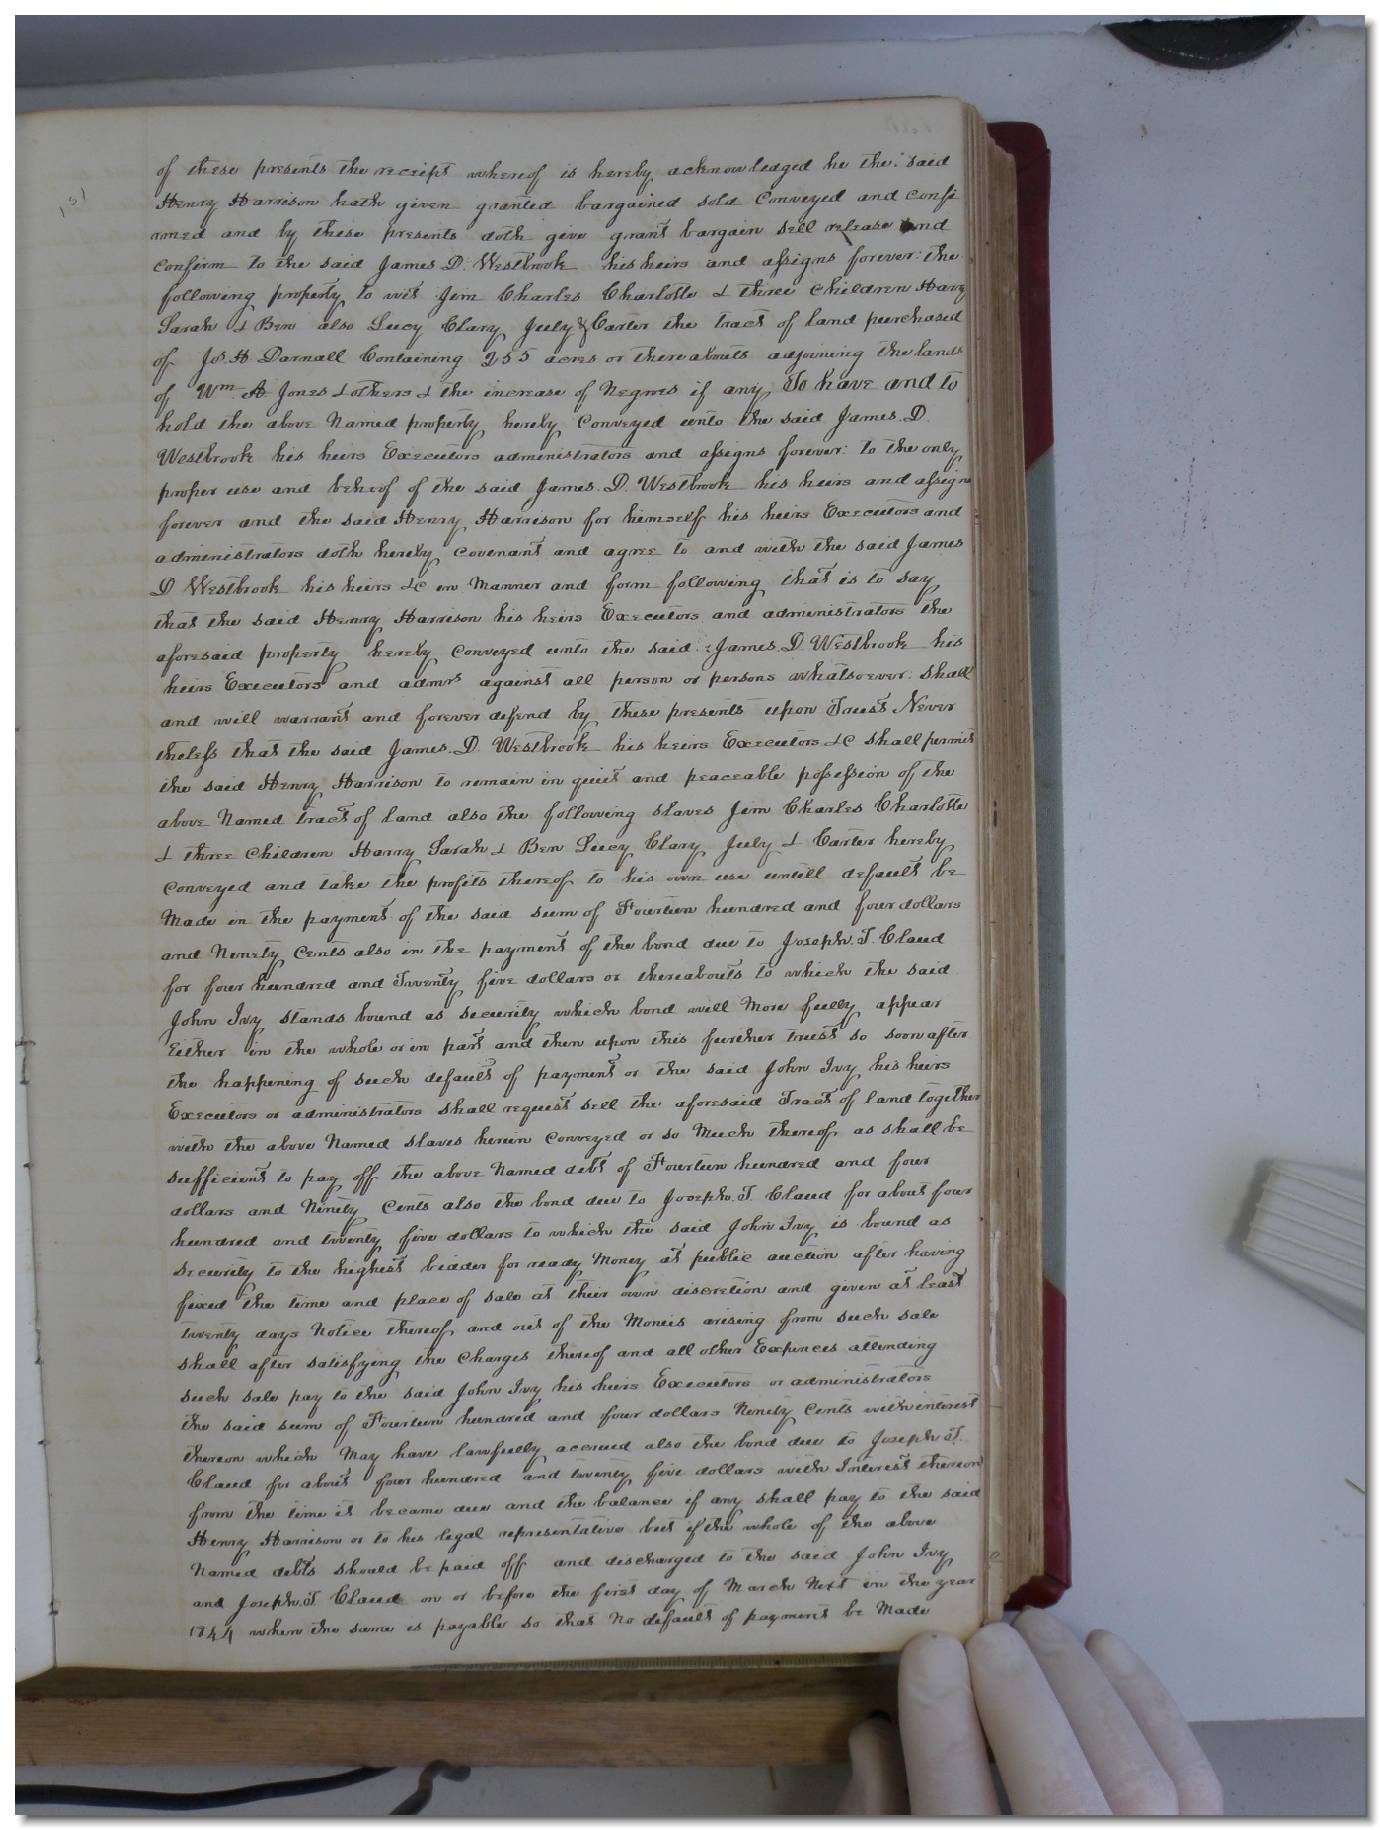 151
of these presents the receipt whereof is hereby acknowledged he the said
Henry Harrison hath given granted bargained sold Conveyed and Confi
rmed and by these presents doth give grant bargain sell release and
Confirm to the said James D. Westbrook his heirs and assigns forever: the
following property to wit Jim Charles Charlotte & three Children Harry
Sarah & Ben also Lucy Clary July & Carter the tract of land purchased
of Jos. H Darnall Containing 255 acres or thereabouts adjoining the lands
of Wm. A Jones & others & the increase of Negroes if any, To have and to
hold the above Named property hereby Conveyed unto the said James. D.
Westbrook his heirs Executors administrators and assigns forever: to the only
proper use and behoof of the said James. D. Westbrook his heirs and assigns
forever and the said Henry Harrison for himself his heirs Executors and
administrators doth hereby covenant and agree to and with the said James
D Westbrook his heirs &C in Manner and form following that is to say
that the said Henry Harrison his heirs Executors and administrators the
aforesaid property hereby Conveyed unto the said James D Westbrook his
heirs Executors and admrs against all person or persons whatsoever: shall
and will warrant and forever defend by these presents upon Trust Never
theless that the said James. D. Westbrook his heirs Executors &C shall permit
the said Henry Harrison to remain in quiet and peaceable possession of the
above Named tract of land also the following slaves Jim Charles Charlotte
& three Children Harry Sarah & Ben Lucy Clary July & Carter hereby
Conveyed and take the profits thereof to his own use untill default be
Made in the payment of the said sum of Fourteen hundred and four dollars
and Ninety Cents also in the payment of the bond due to Joseph. T. Claud
for four hundred and Twenty five dollars or thereabouts to which the said
John Ivy stands bound as security which bond will More fully appear
Either in the whole or in part and then upon this further trust so soon after
the happening of such default of payment or the said John Ivy his heirs
Executors or administrators shall request sell the aforesaid Tract of land together
with the above Named slaves herein Conveyed or so Much thereof as shall be
sufficient to pay off the above Named debt of Fourteen hundred and four
dollars and Ninety Cents also the bond due to Joseph. T. Claud for about four
hundred and twenty five dollars to which the said John Ivy is bound as
security to the highest bidder for ready Money at public auction after having
fixed the time and place of sale at their own discretion and given at least
twenty days Notice thereof and out of the Monies arising from such sale
shall after satisfying the Charges thereof and all other Expences attending
such sale pay to the said John Ivy his heirs Executors or administrators
the said sum of Fourteen hundred and four dollars Ninety Cents with interest
thereon which May have lawfully accrued also the bond due to Joseph T.
Claud for about four hundred and twenty five dollars with Interest thereon
from the time it became due and the balance if any shall pay to the said
Henry Harrison or to his legal representative but if the whole of the above
Named debts should be paid off and discharged to the said John Ivy
and Joseph. T Claud on or before the first day of March Next in the year
1844 when the same is payable so that No default of payment be Made